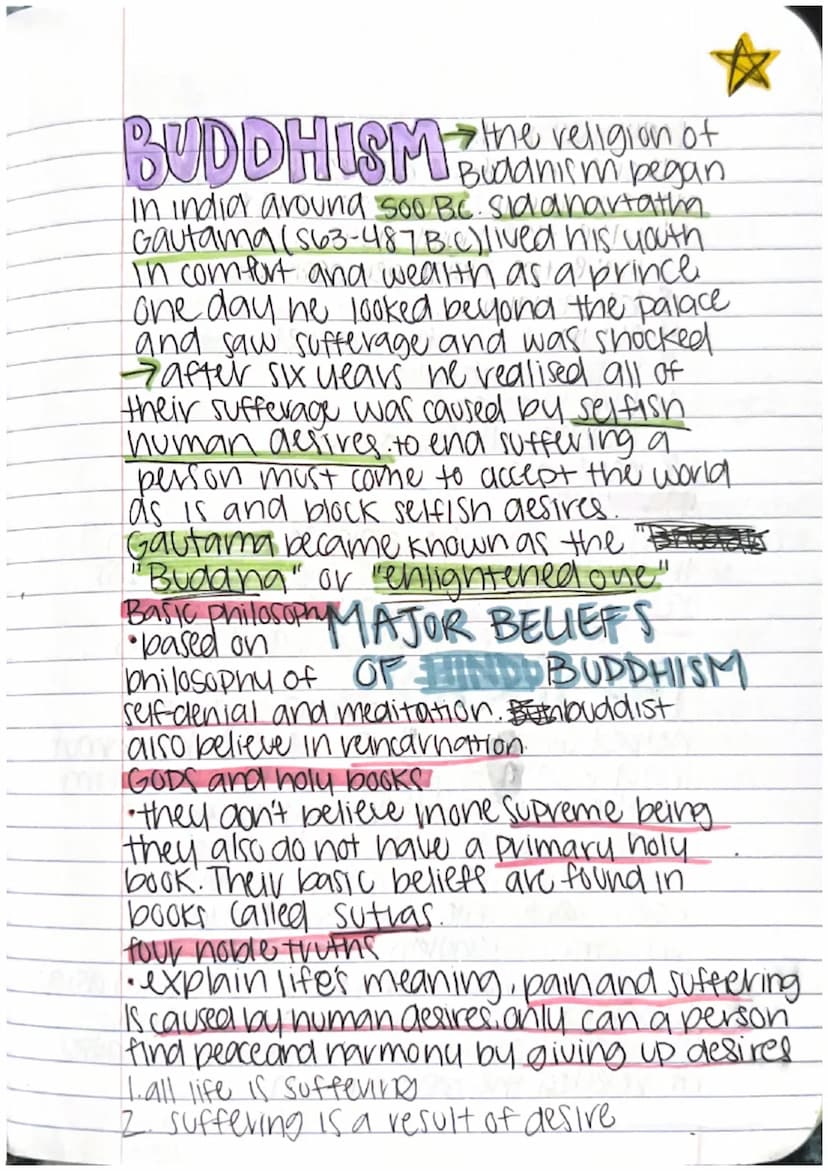 BUDDHISM → the religion of
Buddhism began
in india around 500 B.C. Siddhartatha
Gautama (563-487 B.C) lived his youth
in comfort and wealth as a prince
one day he looked beyond the palace
and saw sufferage and was shocked
→ after six years he realised all of
their sufferage was caused by selfish
human desires. to end suffering a
person must come to accept the world
as is and block selfish desires.
Gautama became known as the "
"Buddha" or "enlightened one"
Basic philosophy
MAJOR BELIEFS
• based on
philosophy of
OF HINDU BUDDHISM
self-denial and meditation. buddist
also believe in reincarnation.
GODS and holy books
• they don't believe in one supreme being
they also do not have a primary holy
book. Their basic beliefs are found in
books called sutras.
four noble truths
• explain life's meaning, pain and suffering
is caused by human desires, only can a person
find peace and harmony by giving up desires
1. all life is suffering
2. suffering is a result of desire